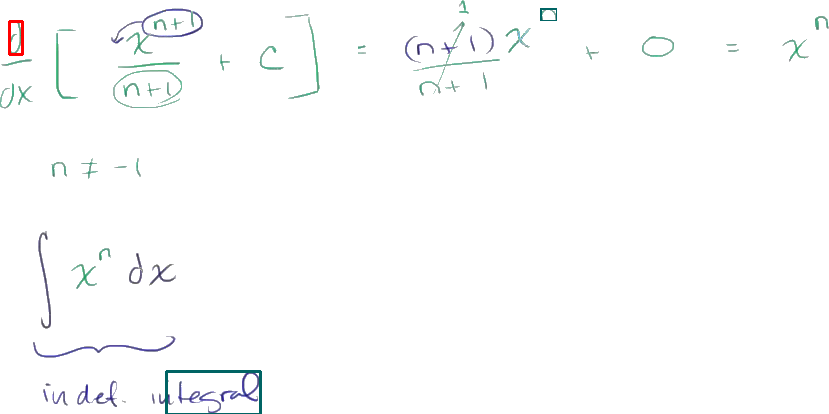 d/dx [ x^(n+1)/(n+1) + C ] = (n+1)x^n/(n+1) 1 + 0 = x^n
n ≠ -1
∫ x^n dx
indef. integral